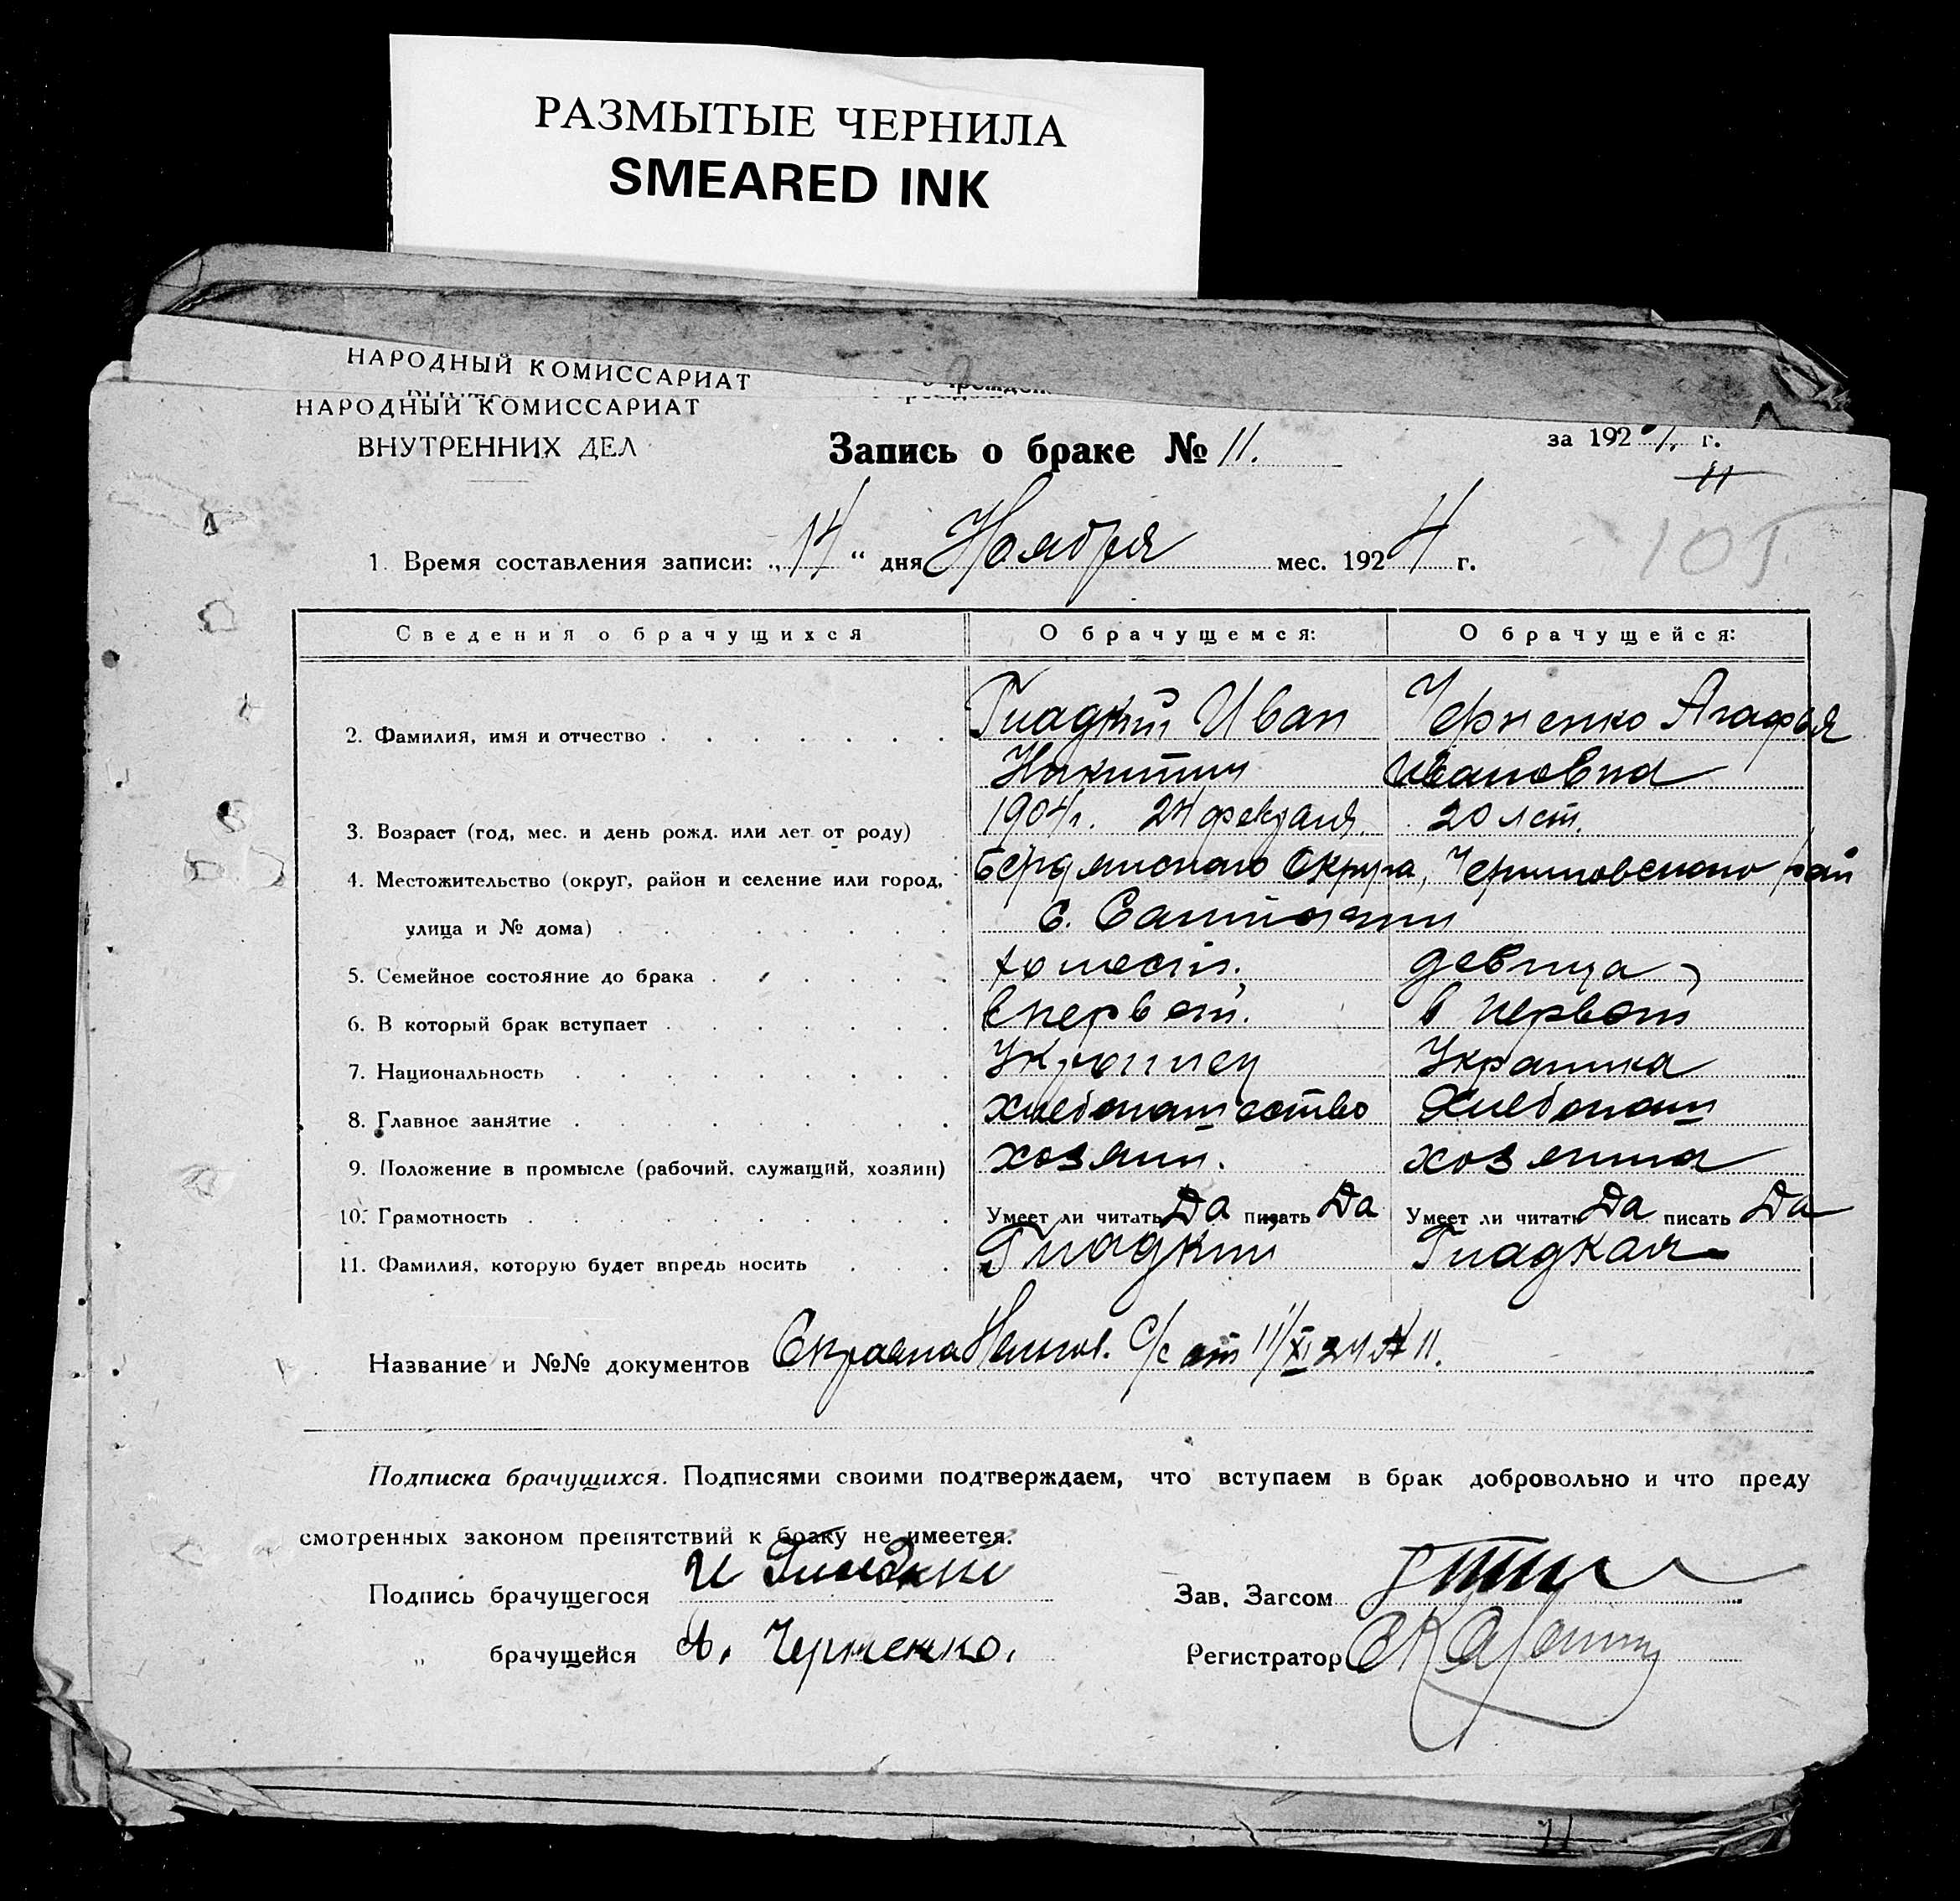 РАЗМЫТЫЕ ЧЕРНИЛА
SMEARED INK
НАРОДНЫЙ КОМИССАРИАТ
НАРОДНЫЙ КОМИССАРИАТ
ВНУТРЕННИХ ДЕЛ
Запись о браке № 11.
за 192 г.
11
105
1. Время составления записи: „ 14 “ дня Ноября мес. 1924 г.
Сведения о брачущихся О брачущемся: О брачущейся:
2. Фамилия, имя и отчество Гладкий Иван Черненко Агафья
Никитич Ивановна
3. Возраст (год, мес. и день рожд. или лет от роду) 1904 г. 24 февраля 20 лет.
4. Местожительство (округ, район и селение или город, Бердянского Округа, Черниговского рай
улица и № дома) с.
5. Семейное состояние до брака холост. девица
6. В который брак вступает в первый. в первый
7. Национальность Украинец Украинка
8. Главное занятие Хлебопашество Хлебопаш
9. Положение в промысле (рабочий, служащий, хозяин) хозяин. хозяйка
10. Грамотность Умеет ли читать Да писать Да Умеет ли читать Да писать Да
11. Фамилия, которую будет впредь носить Гладкий Гладкая
Название и №№ документов С/с от 11/XI 24 № 11.
Подписка брачущихся. Подписями своими подтверждаем, что вступаем в брак добровольно и что преду
смотренных законом препятствий к браку не имеется.
Подпись брачущегося И Гладкий
Зав. Загсом
„ брачущейся А. Черненко.
Регистратор
11